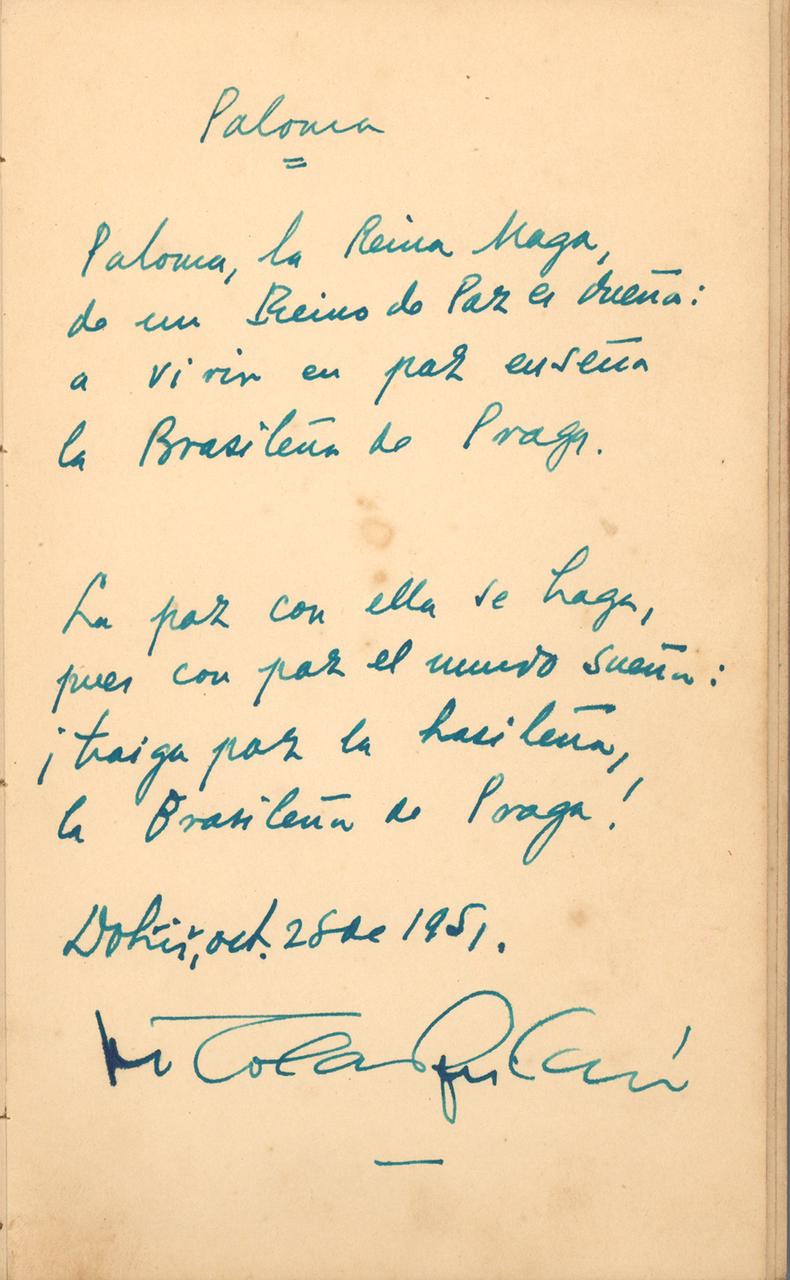 Paloma
Paloma, la Reina Maga,
de un Reino de Paz es dueña:
a vivir en paz enseña
la Brasileña de Praga.
La paz con ella se haga,
pues con paz el mundo sueña:
¡traiga paz la brasileña,
la Brasileña de Praga!
Dobříš, oct. 28 de 1951.
Nicolás Guillén